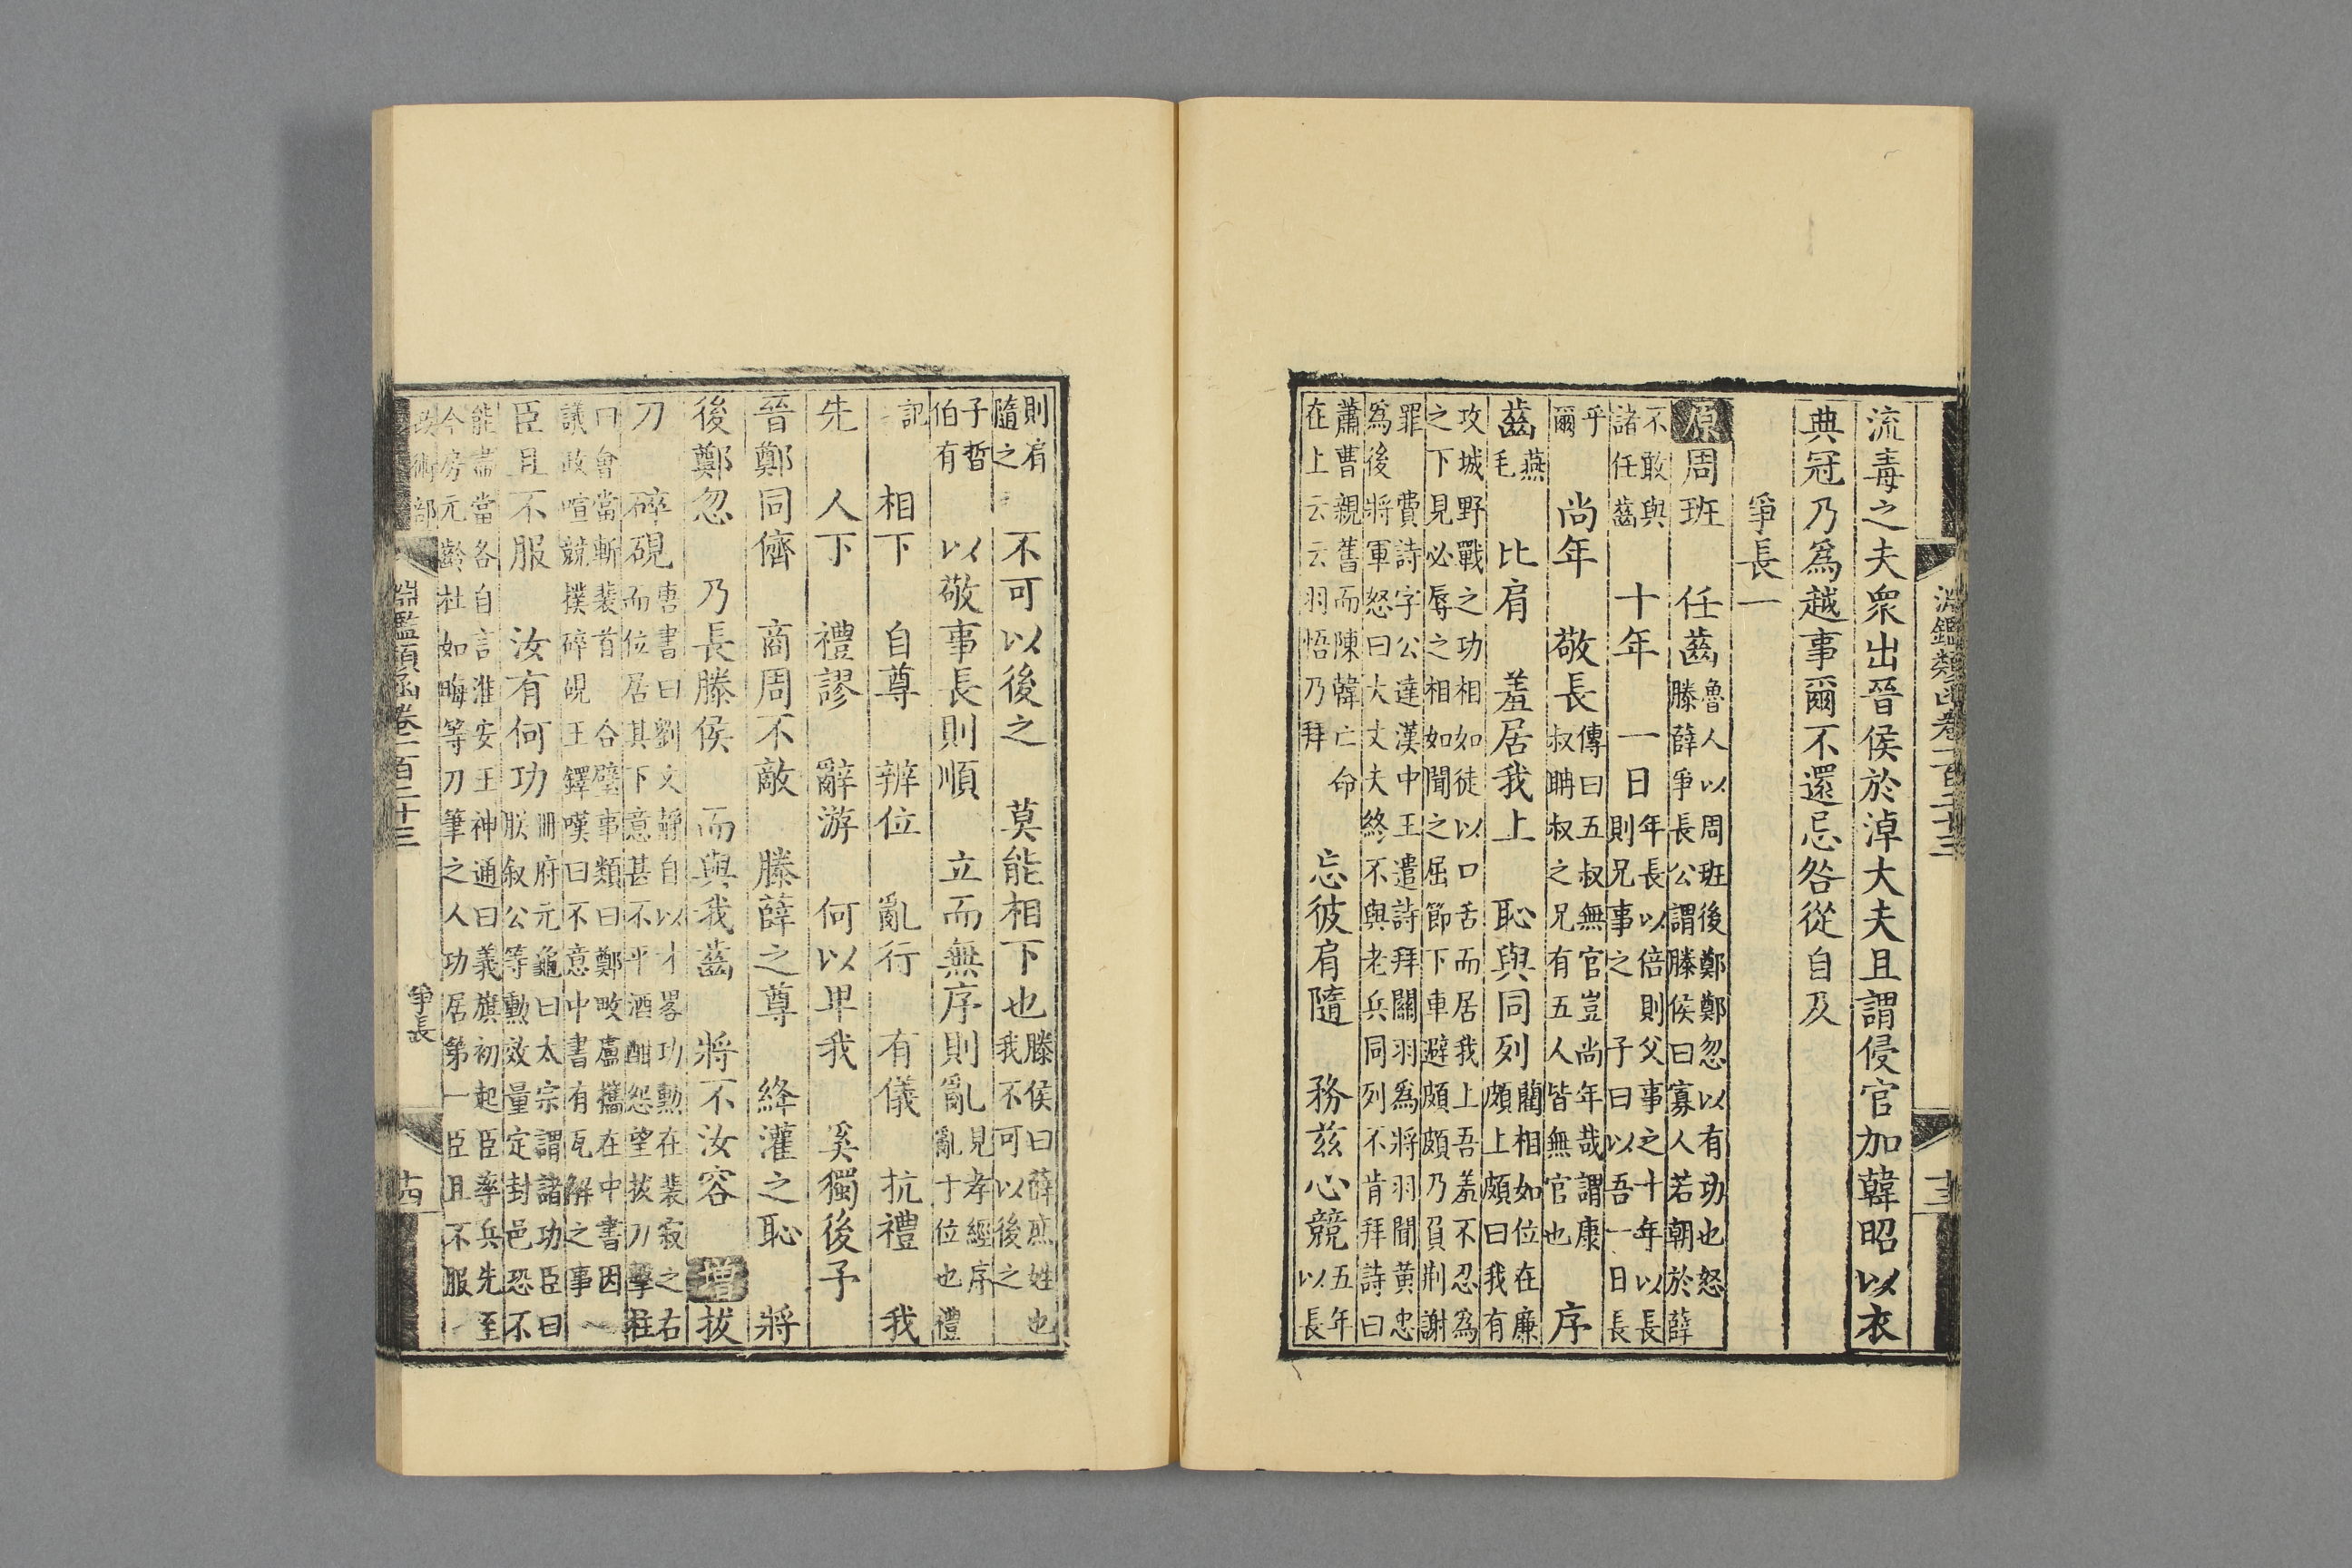 淵鑑類函卷一百二十三 十三
流毒之夫衆出晉侯於淖大夫且謂侵官加韓昭以衣
典冠乃爲越事爾不還忌咎從自及
爭長一
原周班 任齒魯人以周班後鄭鄭忽以有功也怒滕薛爭長公謂滕侯曰寡人若朝於薛
不敢與諸任齒 十年 一日年長以倍則父事之十年以長則兄事之 子曰以吾一日長
乎爾 尚年 敬長傳曰五叔無官豈尚年哉謂康叔聃叔之兄有五人皆無官也 序
齒燕毛 比肩 羞居我上 恥與同列藺相如位在廉頗上頗曰我有
攻城野戰之功相如徒以口舌而居我上吾羞不忍爲之下見必辱之相如聞之屈節下車避頗頗乃負荆謝
罪 費詩字公達漢中王遣詩拜關羽爲將羽聞黃忠爲後將軍怒曰大丈夫終不與老兵同列不肯拜詩曰
蕭曹親舊而陳韓亡命在上云云羽悟乃拜 忘彼肩隨 務兹心競五年以長
則肩隨之 不可以後之 莫能相下也滕侯曰薛庶姓也我不可以後之
子晳伯有 以敬事長則順 立而無序則亂見孝經序亂于位也禮
記 相下 自尊 辨位 亂行 有儀 抗禮 我
先 人下 禮謬 辭游 何以卑我 奚獨後予
晉鄭同儕 商周不敵 滕薛之尊 絳灌之恥 將
後鄭忽 乃長滕侯 而與我齒 將不汝容 增拔
刀 碎硯唐書曰劉文靜自以才畧功勳在裴寂之右而位居其下意甚不平酒酣怨望拔刀擊柱
曰會當斬裴首 合璧事類曰鄭畋盧攜在中書因議政喧競撲碎硯王鐸嘆曰不意中書有瓦解之事
臣且不服 汝有何功冊府元龜曰太宗謂諸功臣曰朕叙公等勲效量定封邑恐不
能盡當各自言淮安王神通曰義旗初起臣率兵先至今房元齡杜如晦等刀筆之人功居第一臣且不服
淵鑑類函卷一百二十三 爭長 十四